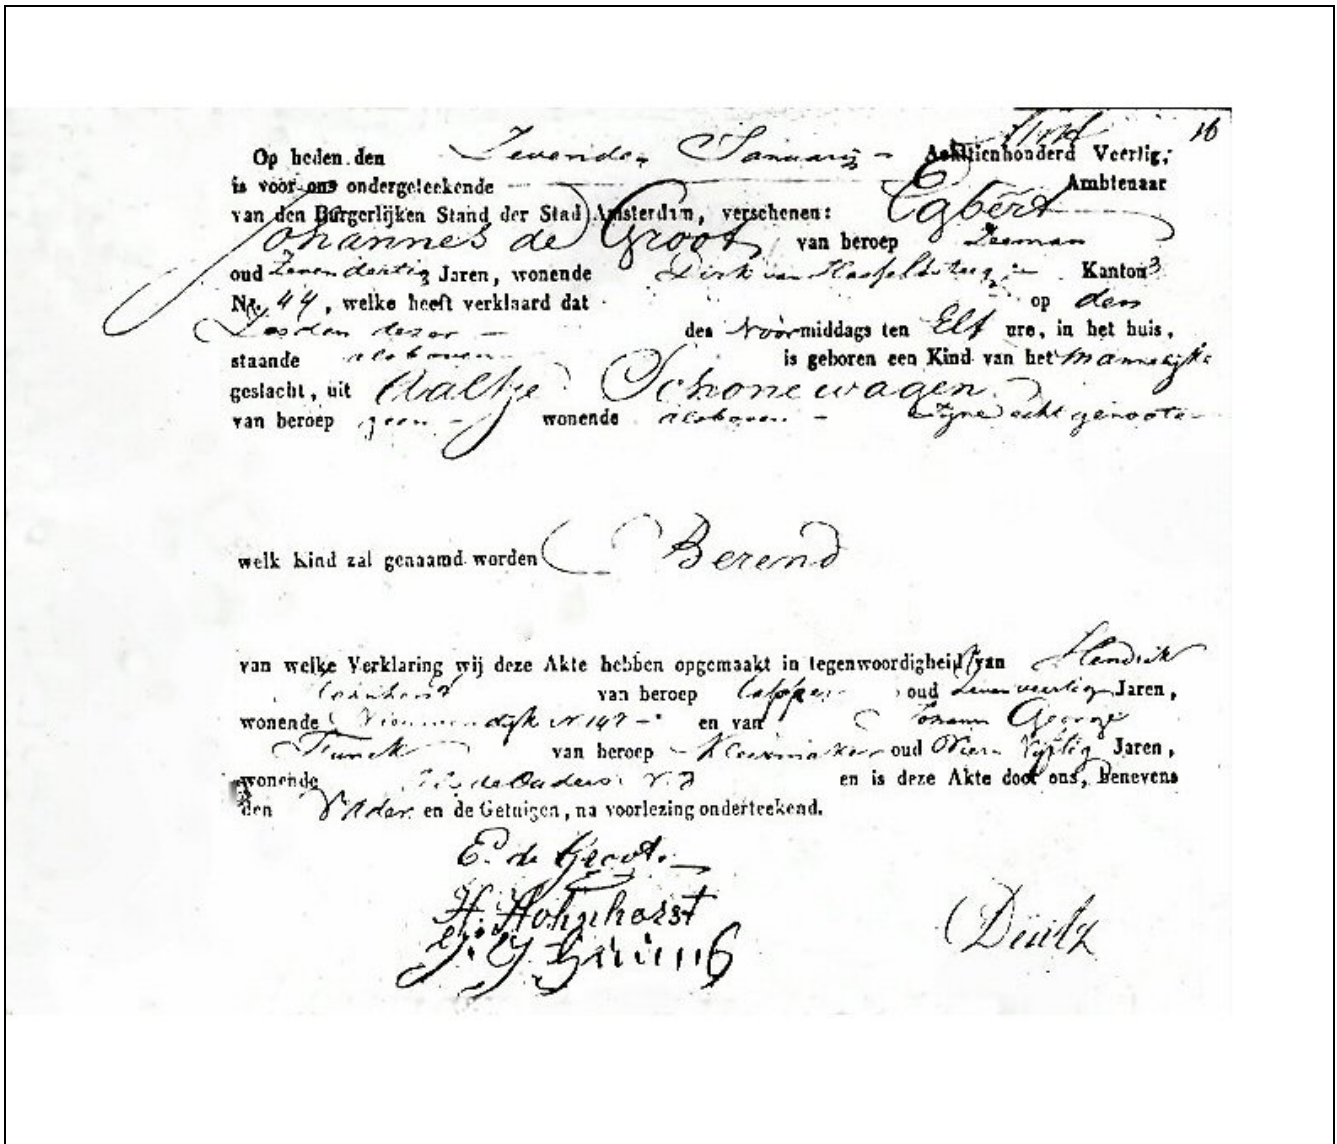 16
Op heden den Zevenden January Achttienhonderd Veertig,
is voor ons ondergeteekende Ambtenaar
van den Burgerlijken Stand der Stad Amsterdam, verschenen: Egbert
Johannes de Groot van beroep Zeeman
oud Zevendertig Jaren, wonende Dirk van Hasseltsteeg Kanton 3
Nr. 44, welke heeft verklaard dat op den
Zesden dezer des Voormiddags ten Elf ure, in het huis,
staande alsboven is geboren een Kind van het Mannelijk
geslacht, uit Aaltje Schonewagen
van beroep geen wonende alsboven Zijne echtgenoote
welk Kind zal genaamd worden Berend
van welke Verklaring wij deze Akte hebben opgemaakt in tegenwoordigheid van Hendrik
van beroep oud Zevenveertig Jaren,
wonende Nieuwendijk N 147 en van Johann George
van beroep Kleermaker oud Vier Vijftig Jaren,
wonende en is deze Akte door ons, benevens
den Vader en de Getuigen, na voorlezing onderteekend.
E. de Groot
H. Hohnhorst